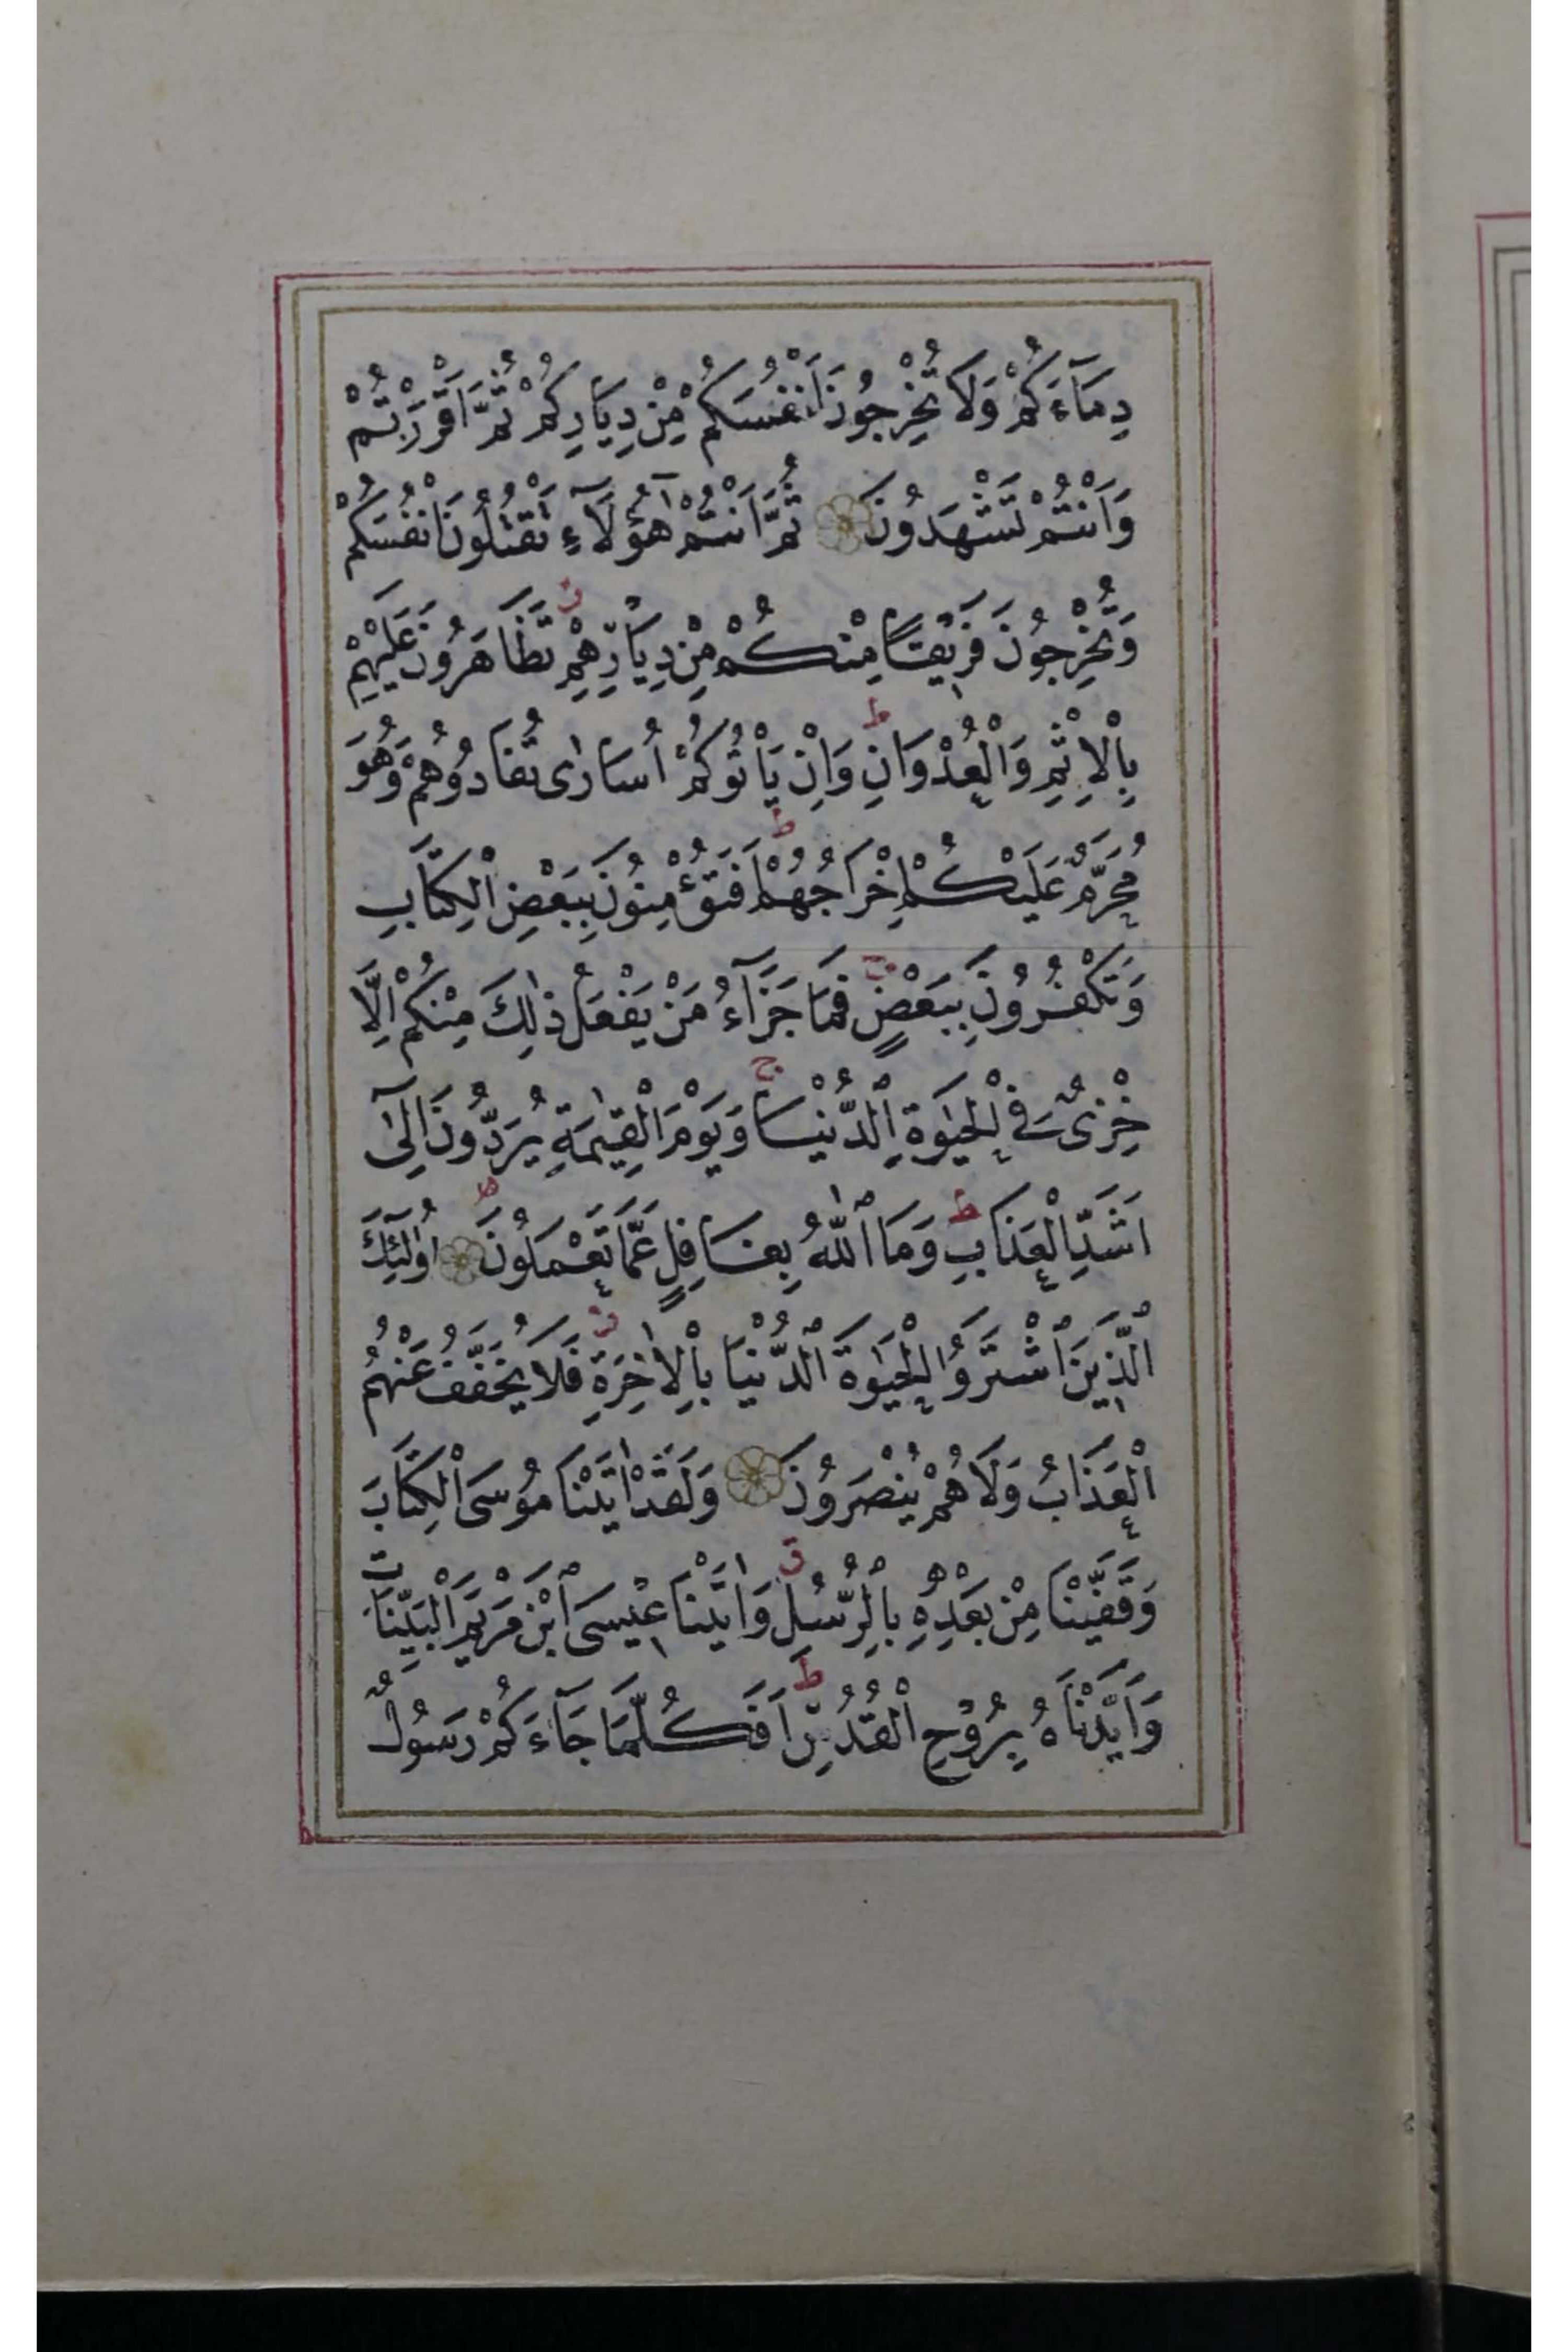 دِمَآءَكُمْ وَلَا تُخْرِجُونَ اَنْفُسَكُمْ مِنْ دِيَارِكُمْ ثُمَّ اَقْرَرْتُمْ
وَاَنْتُمْ تَشْهَدُونَ ثُمَّ اَنْتُمْ هٰٓؤُلَآءِ تَقْتُلُونَ اَنْفُسَكُمْ
وَتُخْرِجُونَ فَرِيقًا مِنْكُمْ مِنْ دِيَارِهِمْ ز تَظَاهَرُونَ عَلَيْهِمْ
بِاْلاِثْمِ وَالْعُدْوَانِ ط وَاِنْ يَاْتُوكُمْ اُسَارٰى تُفَادُوهُمْ وَهُوَ
مُحَرَّمٌ عَلَيْكُمْ اِخْرَاجُهُمْ ط اَفَتُؤْمِنُونَ بِبَعْضِ الْكِتَابِ
وَتَكْفُرُونَ بِبَعْضٍ ج فَمَا جَزَآءُ مَنْ يَفْعَلُ ذٰلِكَ مِنْكُمْ اِلَّا
خِزْىٌ فِى الْحَيٰوةِ الدُّنْيَا ج وَيَوْمَ الْقِيٰمَةِ يُرَدُّونَ اِلٰٓى
اَشَدِّ الْعَذَابِ ط وَمَا اللّٰهُ بِغَافِلٍ عَمَّا تَعْمَلُونَ اُولٰٓئِكَ
الَّذِينَ اشْتَرَوُا الْحَيٰوةَ الدُّنْيَا بِاْلاٰخِرَةِ ز فَلَا يُخَفَّفُ عَنْهُمُ
الْعَذَابُ وَلَا هُمْ يُنْصَرُونَ وَلَقَدْ اٰتَيْنَا مُوسَى الْكِتَابَ
وَقَفَّيْنَا مِنْ بَعْدِهِ بِالرُّسُلِ ز وَاٰتَيْنَا عِيسَى ابْنَ مَرْيَمَ الْبَيِّنَاتِ
وَاَيَّدْنَاهُ بِرُوحِ الْقُدُسِ ط اَفَكُلَّمَا جَآءَكُمْ رَسُولٌ